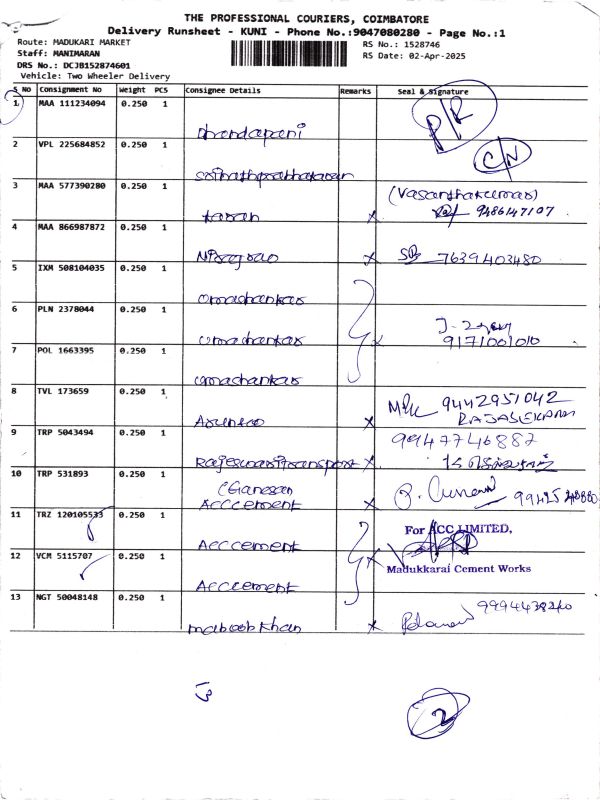 THE PROFESSIONAL COURIERS, COIMBATORE
Delivery Runsheet - KUNI - Phone No.:9047080280 - Page No.:1
Route: MADUKARI MARKET
RS No.: 1528746
Staff: MANIMARAN
RS Date: 02-Apr-2025
DRS No.: DCJB152874601
Vehicle: Two Wheeler Delivery
S No Consignment No Weight PCS Consignee Details Remarks Seal & Signature
1 MAA 111234094 0.250 1 P/R
Dhandapani
2 VPL 225684852 0.250 1 C/N
3 MAA 577390280 0.250 1 (Vasanthakumar)
Karan x 9486147107
4 MAA 866987872 0.250 1
x 7639403480
5 IXM 508104035 0.250 1
Omashankar
6 PLN 2378044 0.250 1
Umashankar x 9171001010
7 POL 1663395 0.250 1
Umashankar
8 TVL 173659 0.250 1 9442951042
x RAJASEKARAN
9 TRP 5043494 0.250 1 9947746887
Rajeswaritransport x
10 TRP 531893 0.250 1
(Ganesan
ACCcement x
11 TRZ 120105533 0.250 1 For ACC LIMITED,
ACCcement
12 VCM 5115707 0.250 1 x
Madukkarai Cement Works
ACCcement
13 NGT 50048148 0.250 1 9994438210
maboob Khan x
13
2